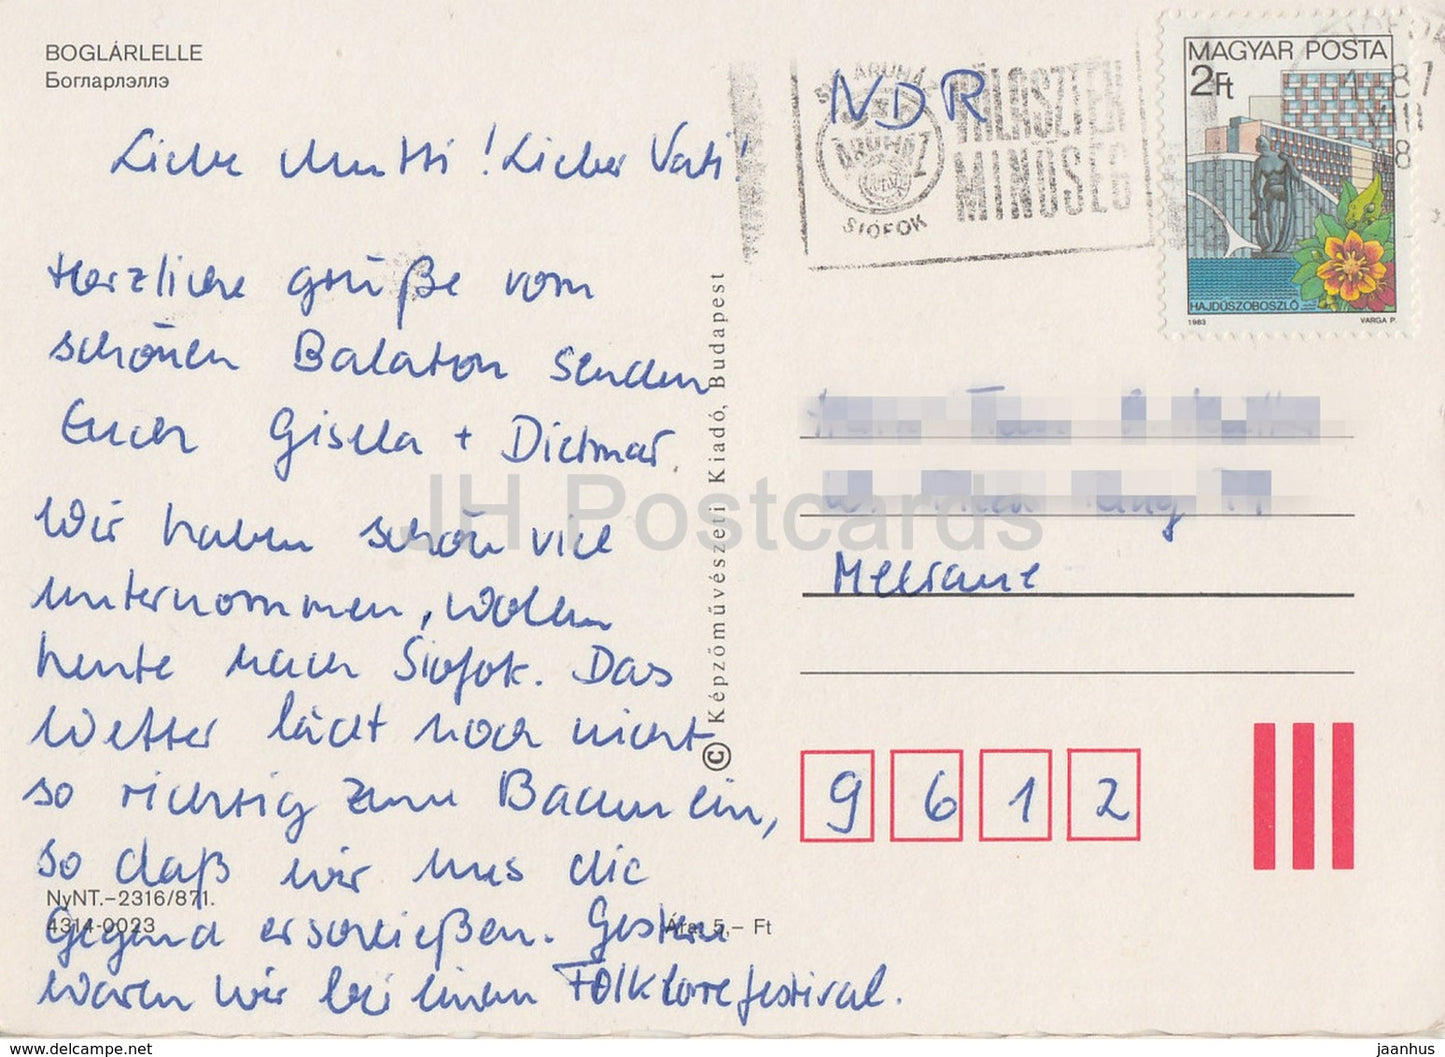 BOGLÁRLELLE
Богларлэллэ
Liebe Mutti! Lieber Vati!
Herzliche Grüße vom
schönen Balaton senden
Euch Gisela + Dietmar.
Wir haben schön viel
unternommen, wollen
heute nach Siofok. Das
Wetter lädt noch nicht
so richtig zum Baden ein,
so daß wir uns die
Gegend erschließen. Gestern
waren wir bei einem Folklorefestival.
NyNT.–2316/871.
4314-0023
Ára: 5,– Ft
© Képzőművészeti Kiadó, Budapest
NDR
ÁRUHÁZ
SIÓFOK
VÁLASZTÉK
MINŐSÉG
MAGYAR POSTA
2Ft
HAJDÚSZOBOSZLÓ
1983
VARGA P.
Meerane
9612
JH Postcards
delcampe.net
jaanhus